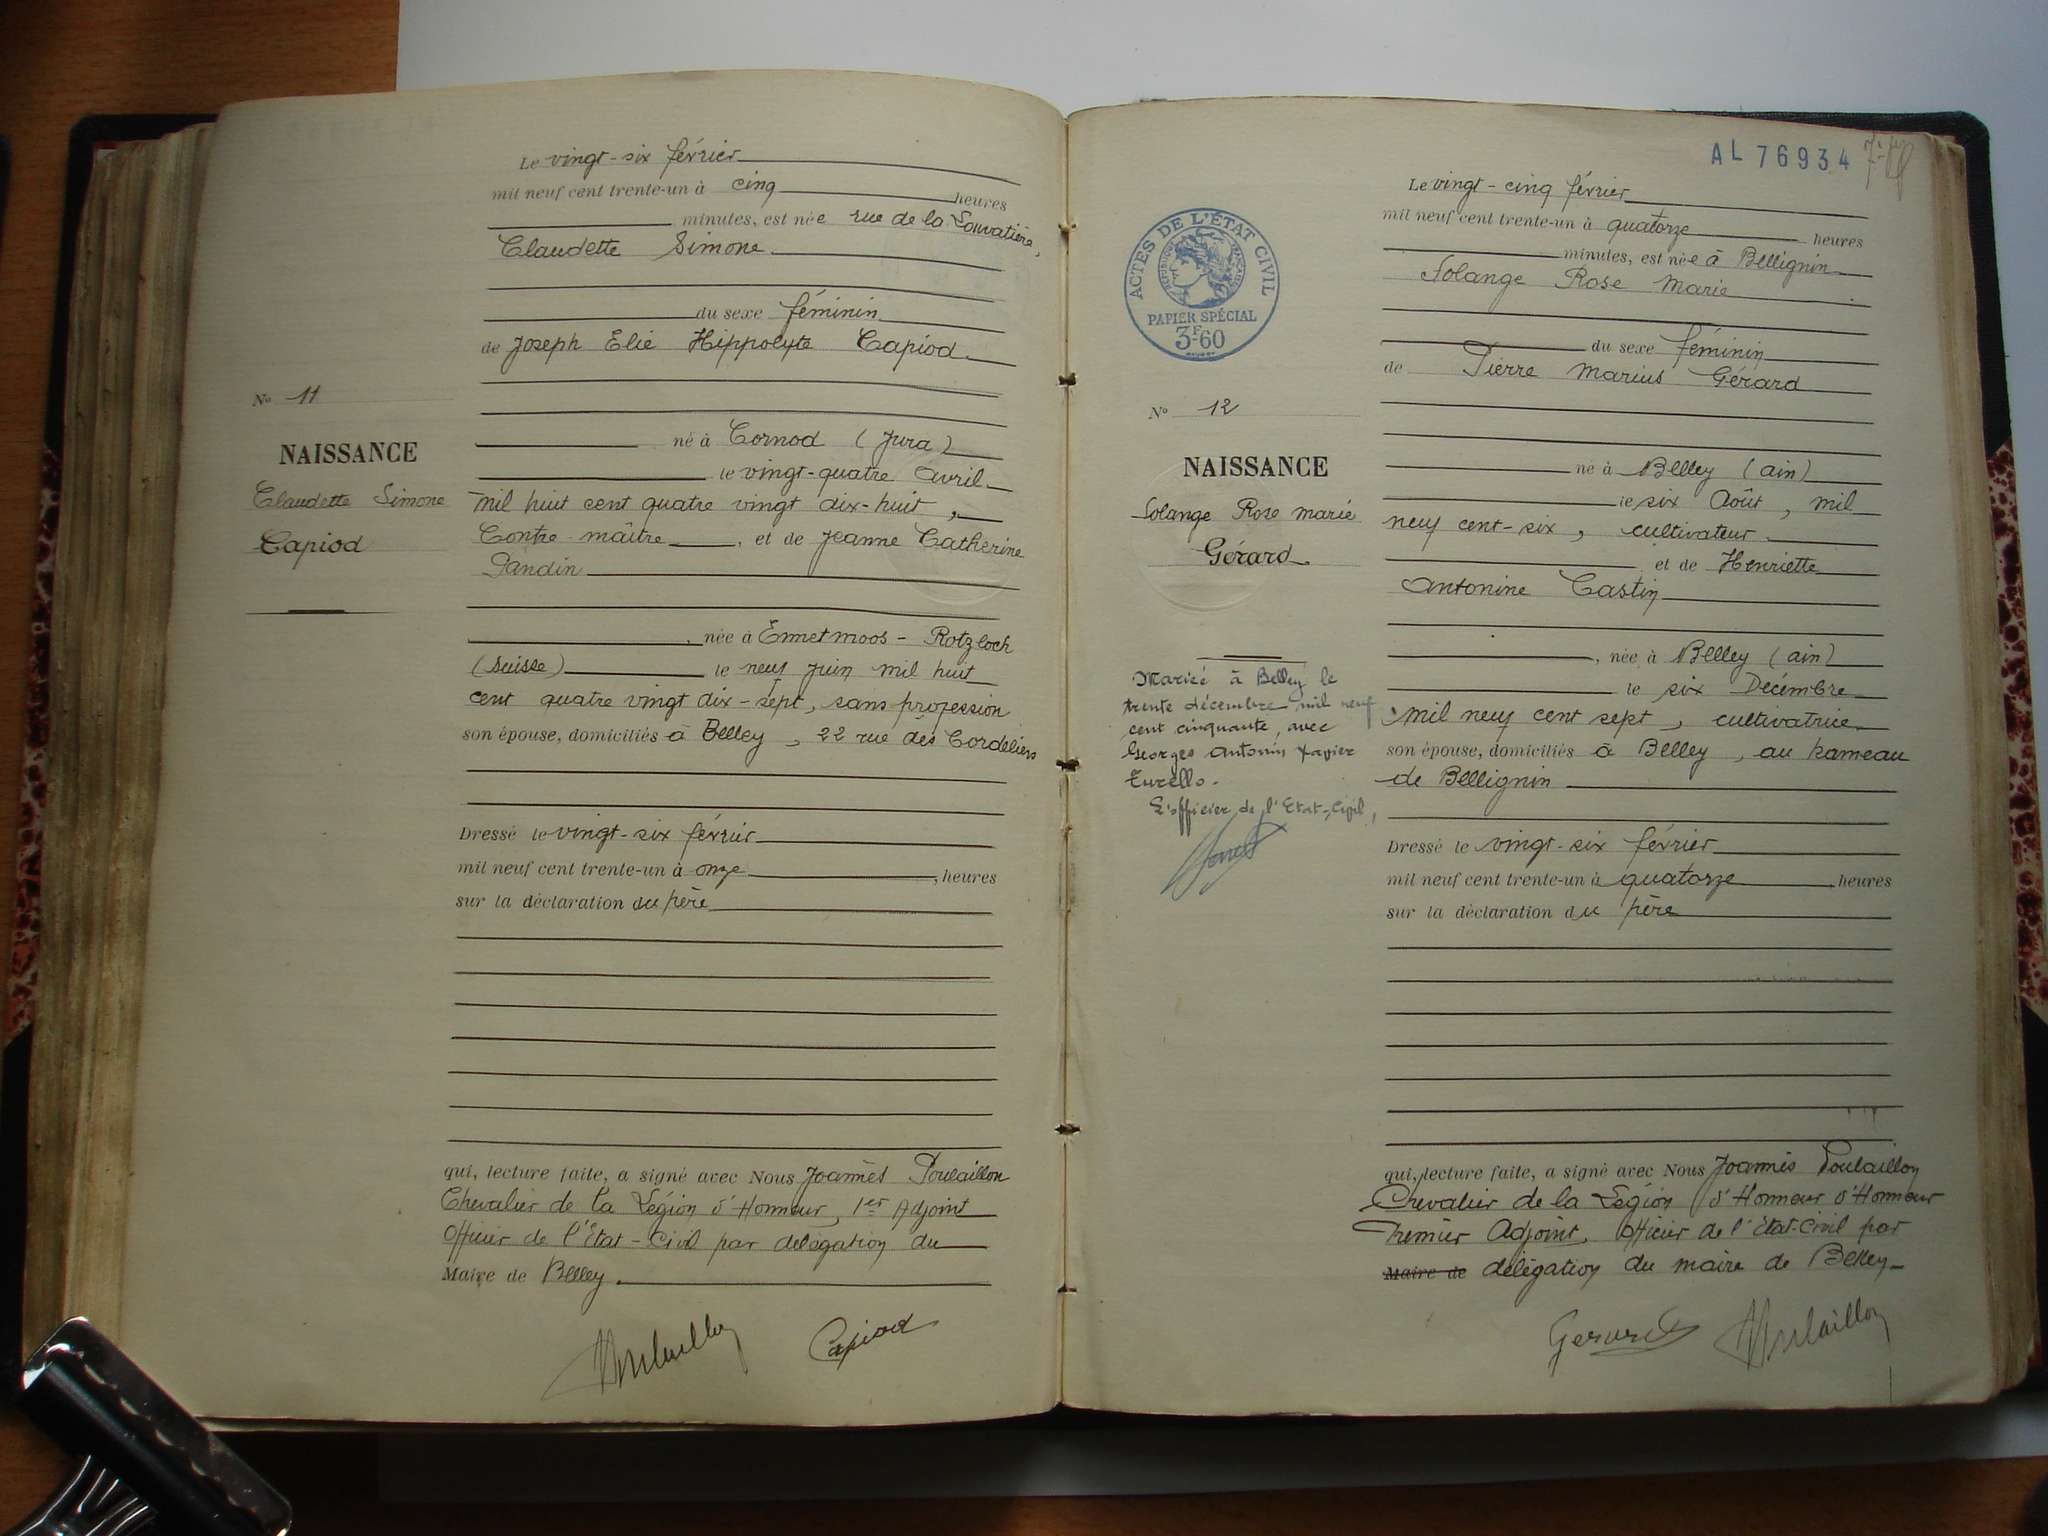 Le vingt-six février
mil neuf cent trente-un à cinq heures
minutes, est née rue de la Louvatière,
Claudette Simone
du sexe féminin
de Joseph Elie Hippolyte Capiod
né à Cornod (Jura)
le vingt-quatre avril
mil huit cent quatre vingt dix-huit,
Contre-maître, et de Jeanne Catherine
Dandin
, née à Ennetmoos - Rotzloch
(Suisse) le neuf Juin mil huit
cent quatre vingt dix-sept, sans profession
son épouse, domiciliés à Belley, 22 rue des Cordeliers
Dressé le vingt-six février
mil neuf cent trente-un à onze, heures
sur la déclaration du père
qui, lecture faite, a signé avec Nous Joannès Poulaillon
Chevalier de la Légion d'Honneur, 1er Adjoint
Officier de l'Etat-Civil par délégation du
Maire de Belley.
Poulaillon Capiod
No 11
NAISSANCE
Claudette Simone
Capiod
AL 76934
ACTES DE L'ÉTAT CIVIL
RÉPUBLIQUE FRANÇAISE
PAPIER SPÉCIAL
3F.60
No 12
NAISSANCE
Solange Rose Marie
Gérard
Mariée à Belley le
trente décembre mil neuf
cent cinquante, avec
Georges Antonin Xavier
Turello.
L'officier de l'Etat-Civil,
Le vingt-cinq février
mil neuf cent trente-un à quatorze heures
minutes, est née à Bellignin
Solange Rose Marie
du sexe féminin
de Pierre Marius Gérard
né à Belley (ain)
le six Août, mil
neuf cent-six, cultivateur
et de Henriette
Antonine Castin
, née à Belley (ain)
le six Décembre
mil neuf cent sept, cultivatrice
son épouse, domiciliés à Belley, au hameau
de Bellignin
Dressé le vingt-six février
mil neuf cent trente-un à quatorze heures
sur la déclaration du père
qui, lecture faite, a signé avec Nous Joannès Poulaillon
Chevalier de la Légion d'Honneur d'Honneur
Premier Adjoint, Officier de l'état-civil par
Maire de délégation du maire de Belley
Gerard Poulaillon